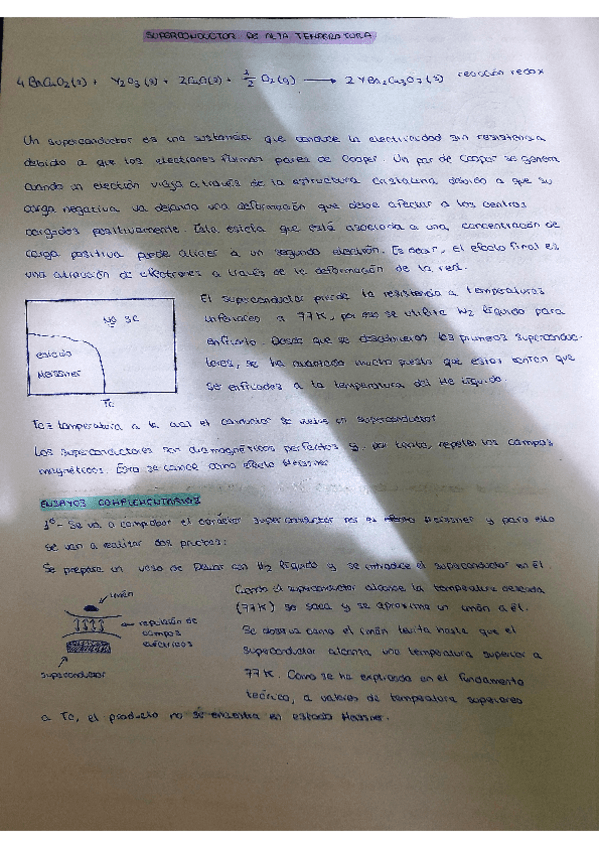 SUPERCONDUCTOR DE ALTA TEMPERATURA
4 BaCuO2(s) + Y2O3(s) + 2CuO(s) + 1/2 O2(g) → 2 YBa2Cu3O7(s) reacción redox
Un superconductor es una sustancia que conduce la electricidad sin resistencia
debido a que los electrones forman pares de Cooper. Un par de Cooper se genera
cuando un electrón viaja a través de la estructura cristalina debido a que su
carga negativa va dejando una deformación que debe afectar a los centros
cargados positivamente. Esta estela que está asociada a una concentración de
carga positiva puede atraer a un segundo electrón. Es decir, el efecto final es
una atracción de electrones a través de la deformación de la red.
El superconductor pierde la resistencia a temperaturas
inferiores a 77K, por eso se utiliza N2 líquido para
enfriarlo. Desde que se descubrieron los primeros superconduc-
tores, se ha avanzado mucho puesto que estos tenían que
ser enfriados a la temperatura del He líquido.
No SC
estado
Meissner
Tc
Tc = temperatura a la cual el conductor se vuelve un superconductor
Los superconductores son diamagnéticos perfectos y, por tanto, repelen los campos
magnéticos. Esto se conoce como efecto Meissner
ENSAYOS COMPLEMENTARIOS
1º- Se va a comprobar el carácter superconductor por el efecto Meissner y para ello
se van a realizar dos pruebas:
Se prepara un vaso de Dewar con N2 líquido y se introduce el superconductor en él.
Cuando el superconductor alcance la temperatura deseada
(77K) se saca y se aproxima un imán a él.
Se observa como el imán levita hasta que el
superconductor alcanza una temperatura superior a
77K. Como se ha explicado en el fundamento
teórico, a valores de temperatura superiores
a Tc, el producto no se encuentra en estado Meissner.
imán
repulsión de
campos
eléctricos
superconductor